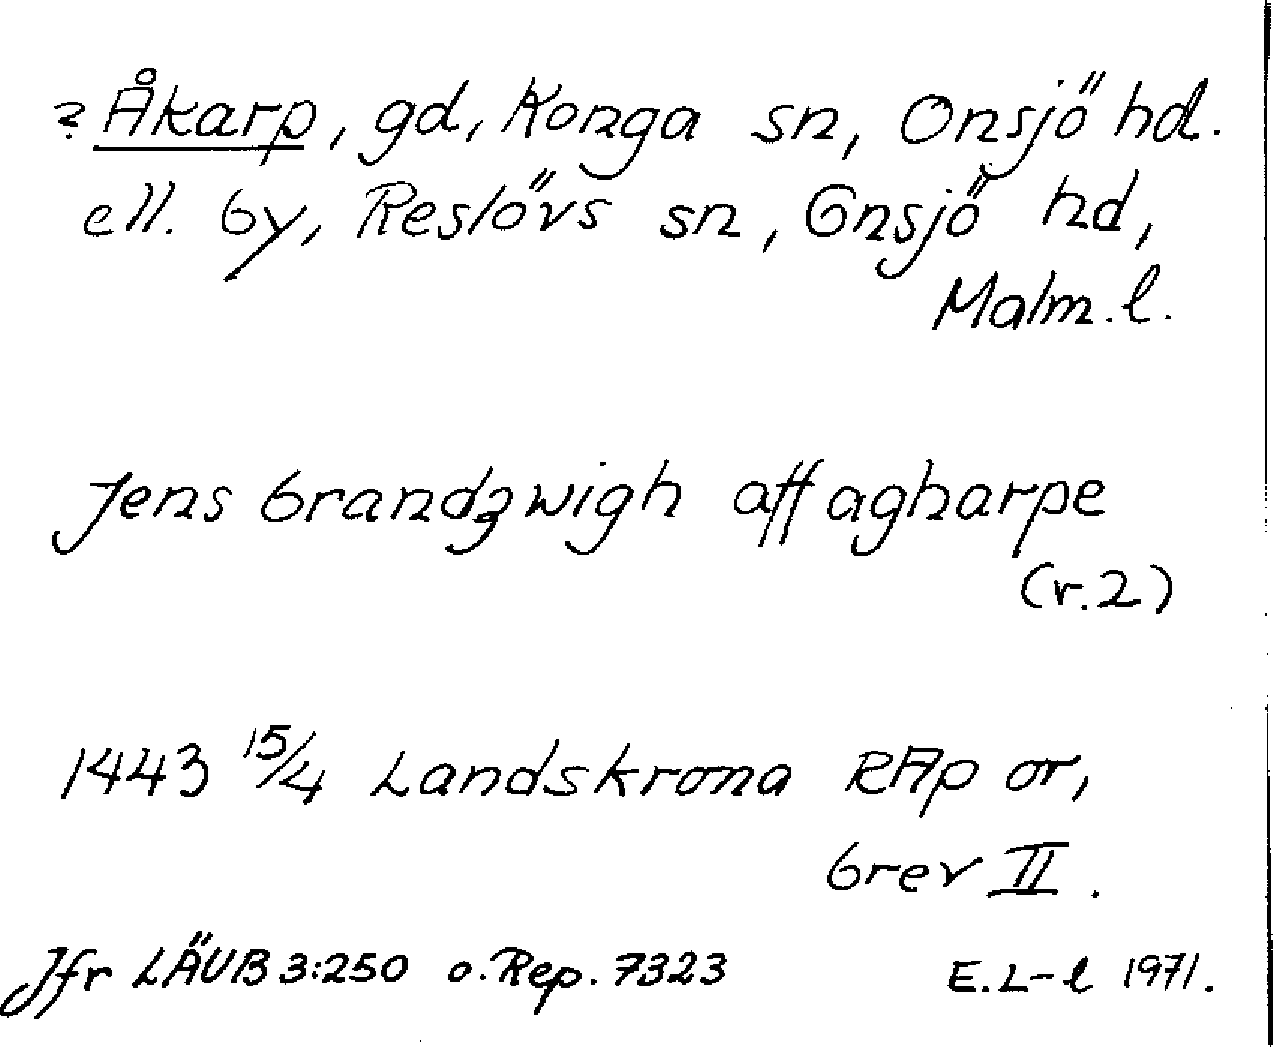 ? Åkarp, gd, Konga sn, Onsjö hd.
ell. by, Reslövs sn, Onsjö hd,
Malm. l.
Jens brandzwigh aff agharpe
(r.2)
1443 15/4 Landskrona RAp or,
brev II.
Jfr LÄUB 3:250 o. Rep. 7323 E. L-l 1971.